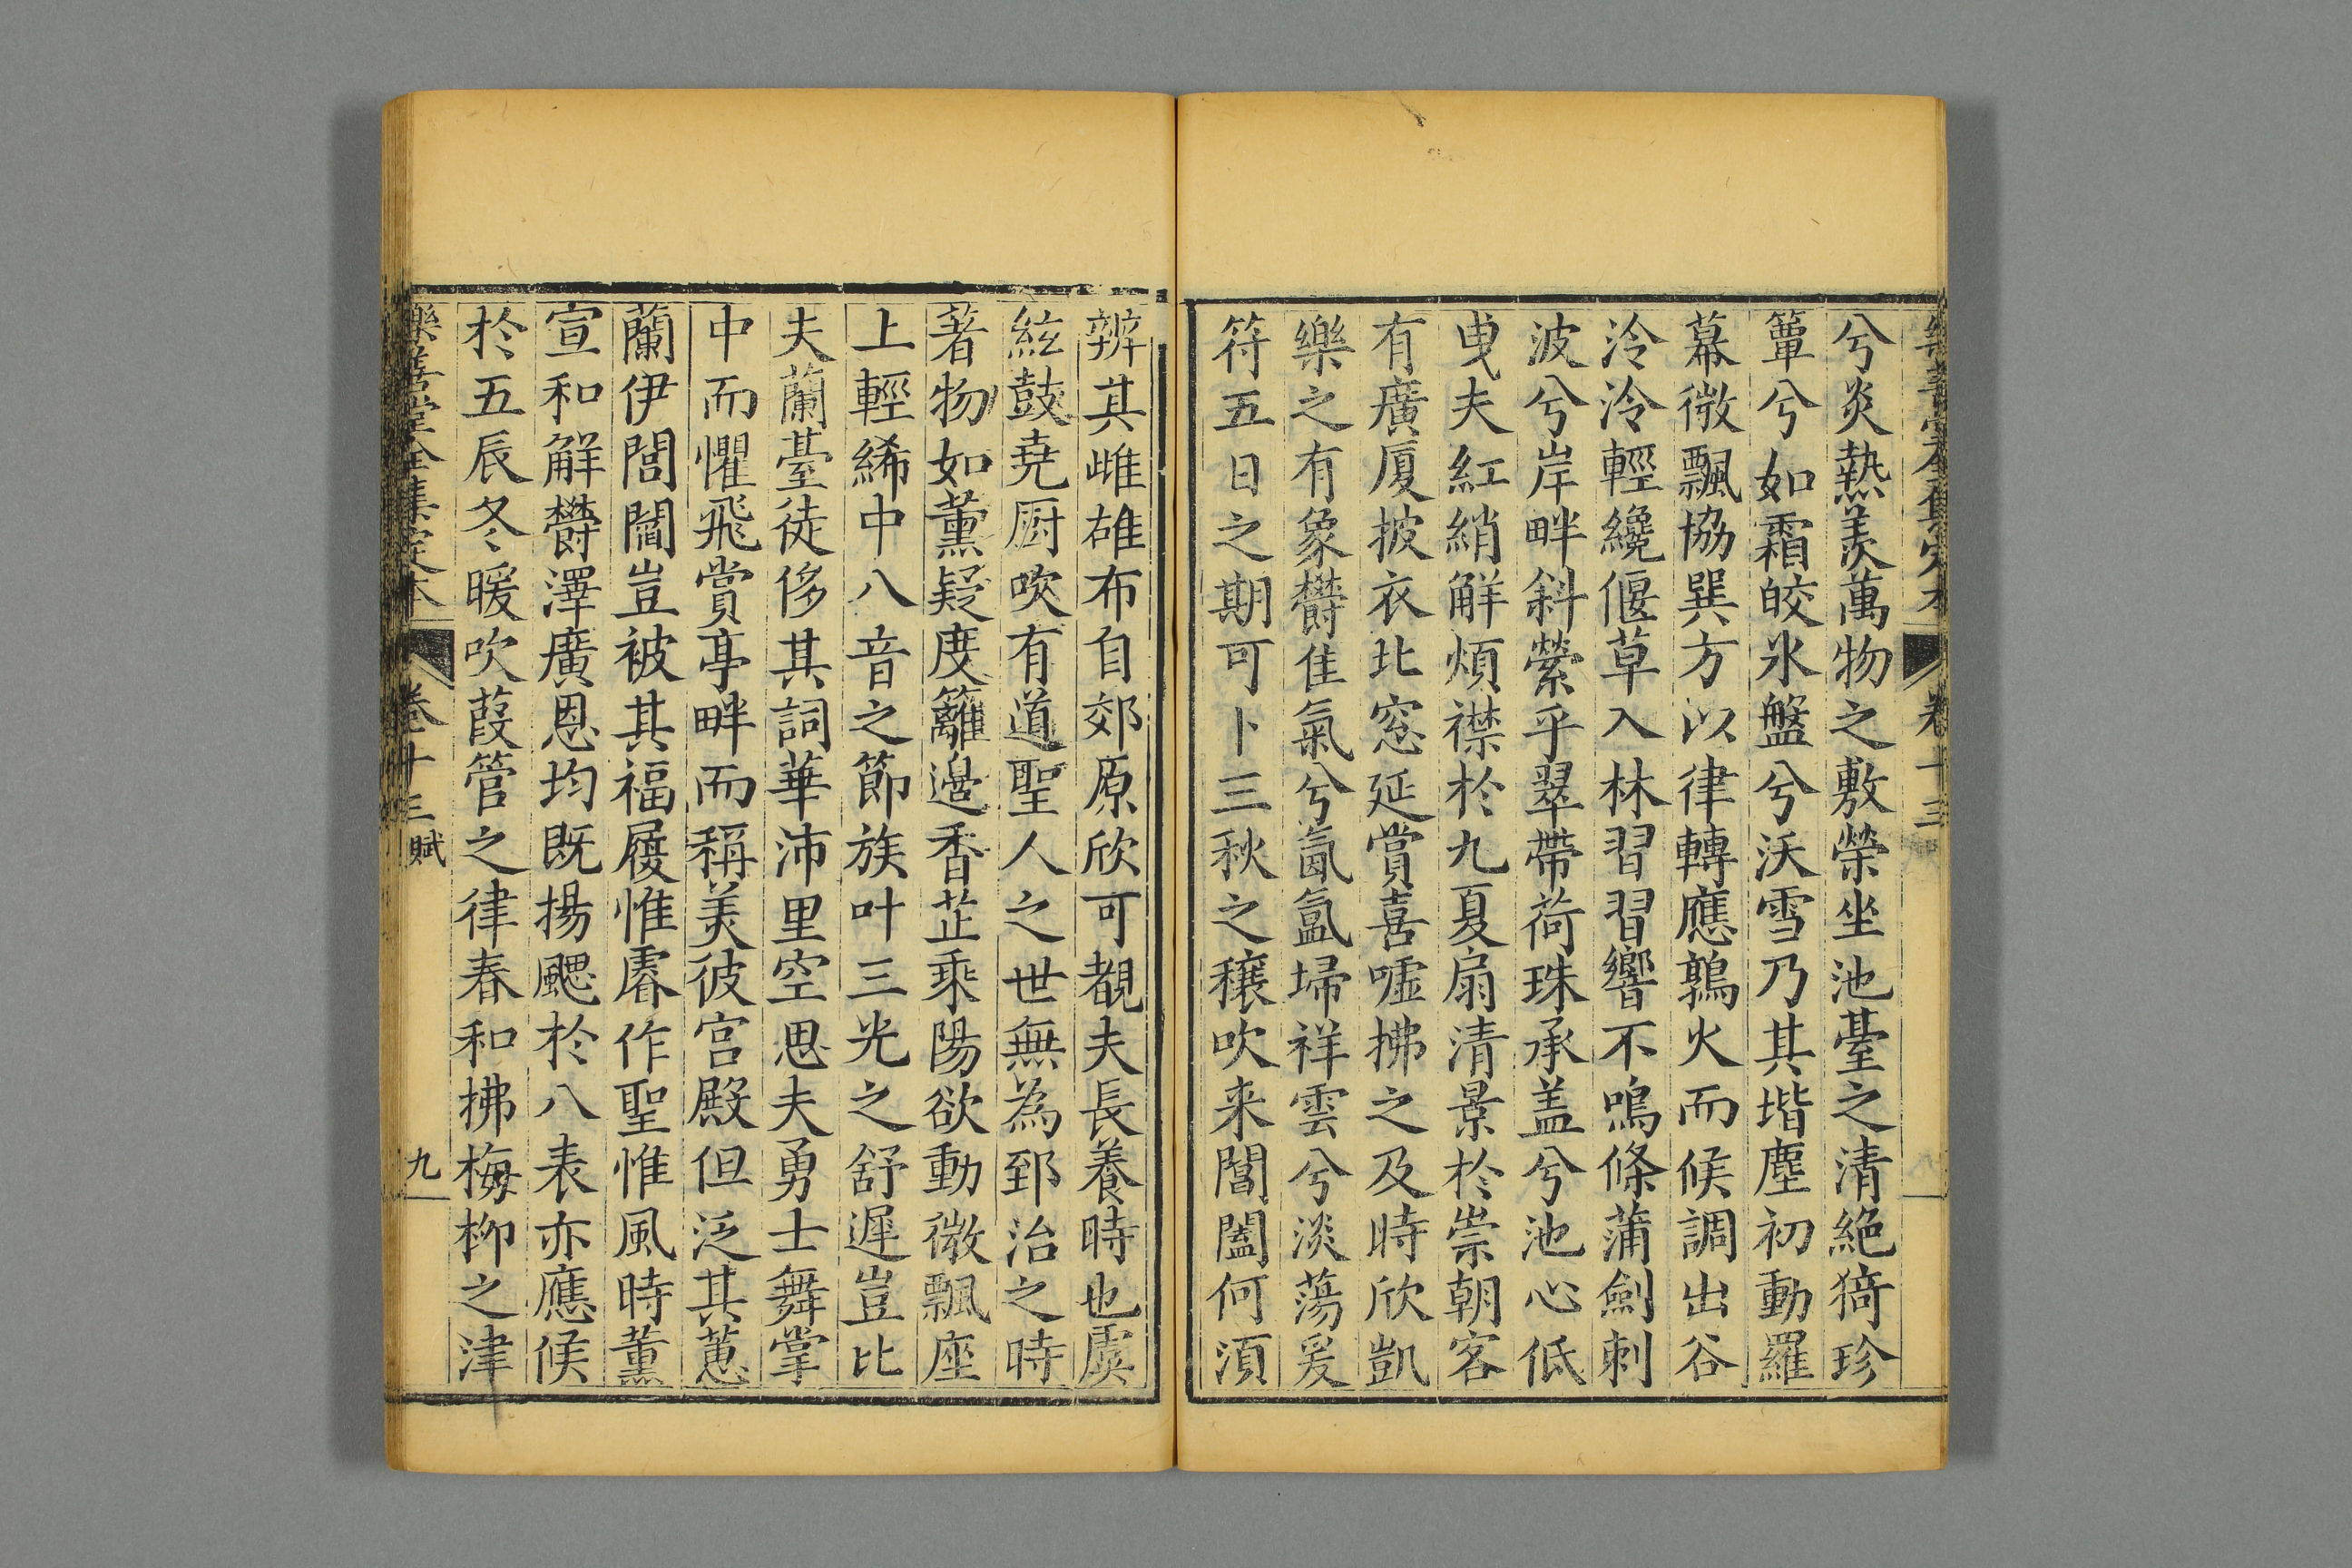 兮炎熱羨萬物之敷榮坐池臺之清絶猗珍
簟兮如霜皎氷盤兮沃雪乃其堦塵初動羅
幕微飄協巽方以律轉應鶉火而候調出谷
泠泠輕纔偃草入林習習響不鳴條蒲劍刺
波兮岸畔斜縈乎翠帶荷珠承盖兮池心低
曳夫紅綃解煩襟於九夏扇清景於崇朝客
有廣厦披衣北窓延賞喜噓拂之及時欣凱
樂之有象欝佳氣兮氤氲埽祥雲兮淡蕩爰
符五日之期可卜三秋之穰吹来閶闔何湏
辨其雌雄布自郊原欣可覩夫長養時也虞
絃鼓堯厨吹有道聖人之世無為郅治之時
著物如薰疑度籬邉香芷乘陽欲動微飄座
上輕絺中八音之節族叶三光之舒遲豈比
夫蘭臺徒侈其詞華沛里空思夫勇士舞掌
中而懼飛賞亭畔而稱美彼宫殿但泛其蕙
蘭伊閭閻豈被其福履惟睿作聖惟風時薰
宣和解欝澤廣恩均既揚颸於八表亦應候
於五辰冬暖吹葭管之律春和拂梅柳之津
樂善堂全集定本 卷十三 賦 九